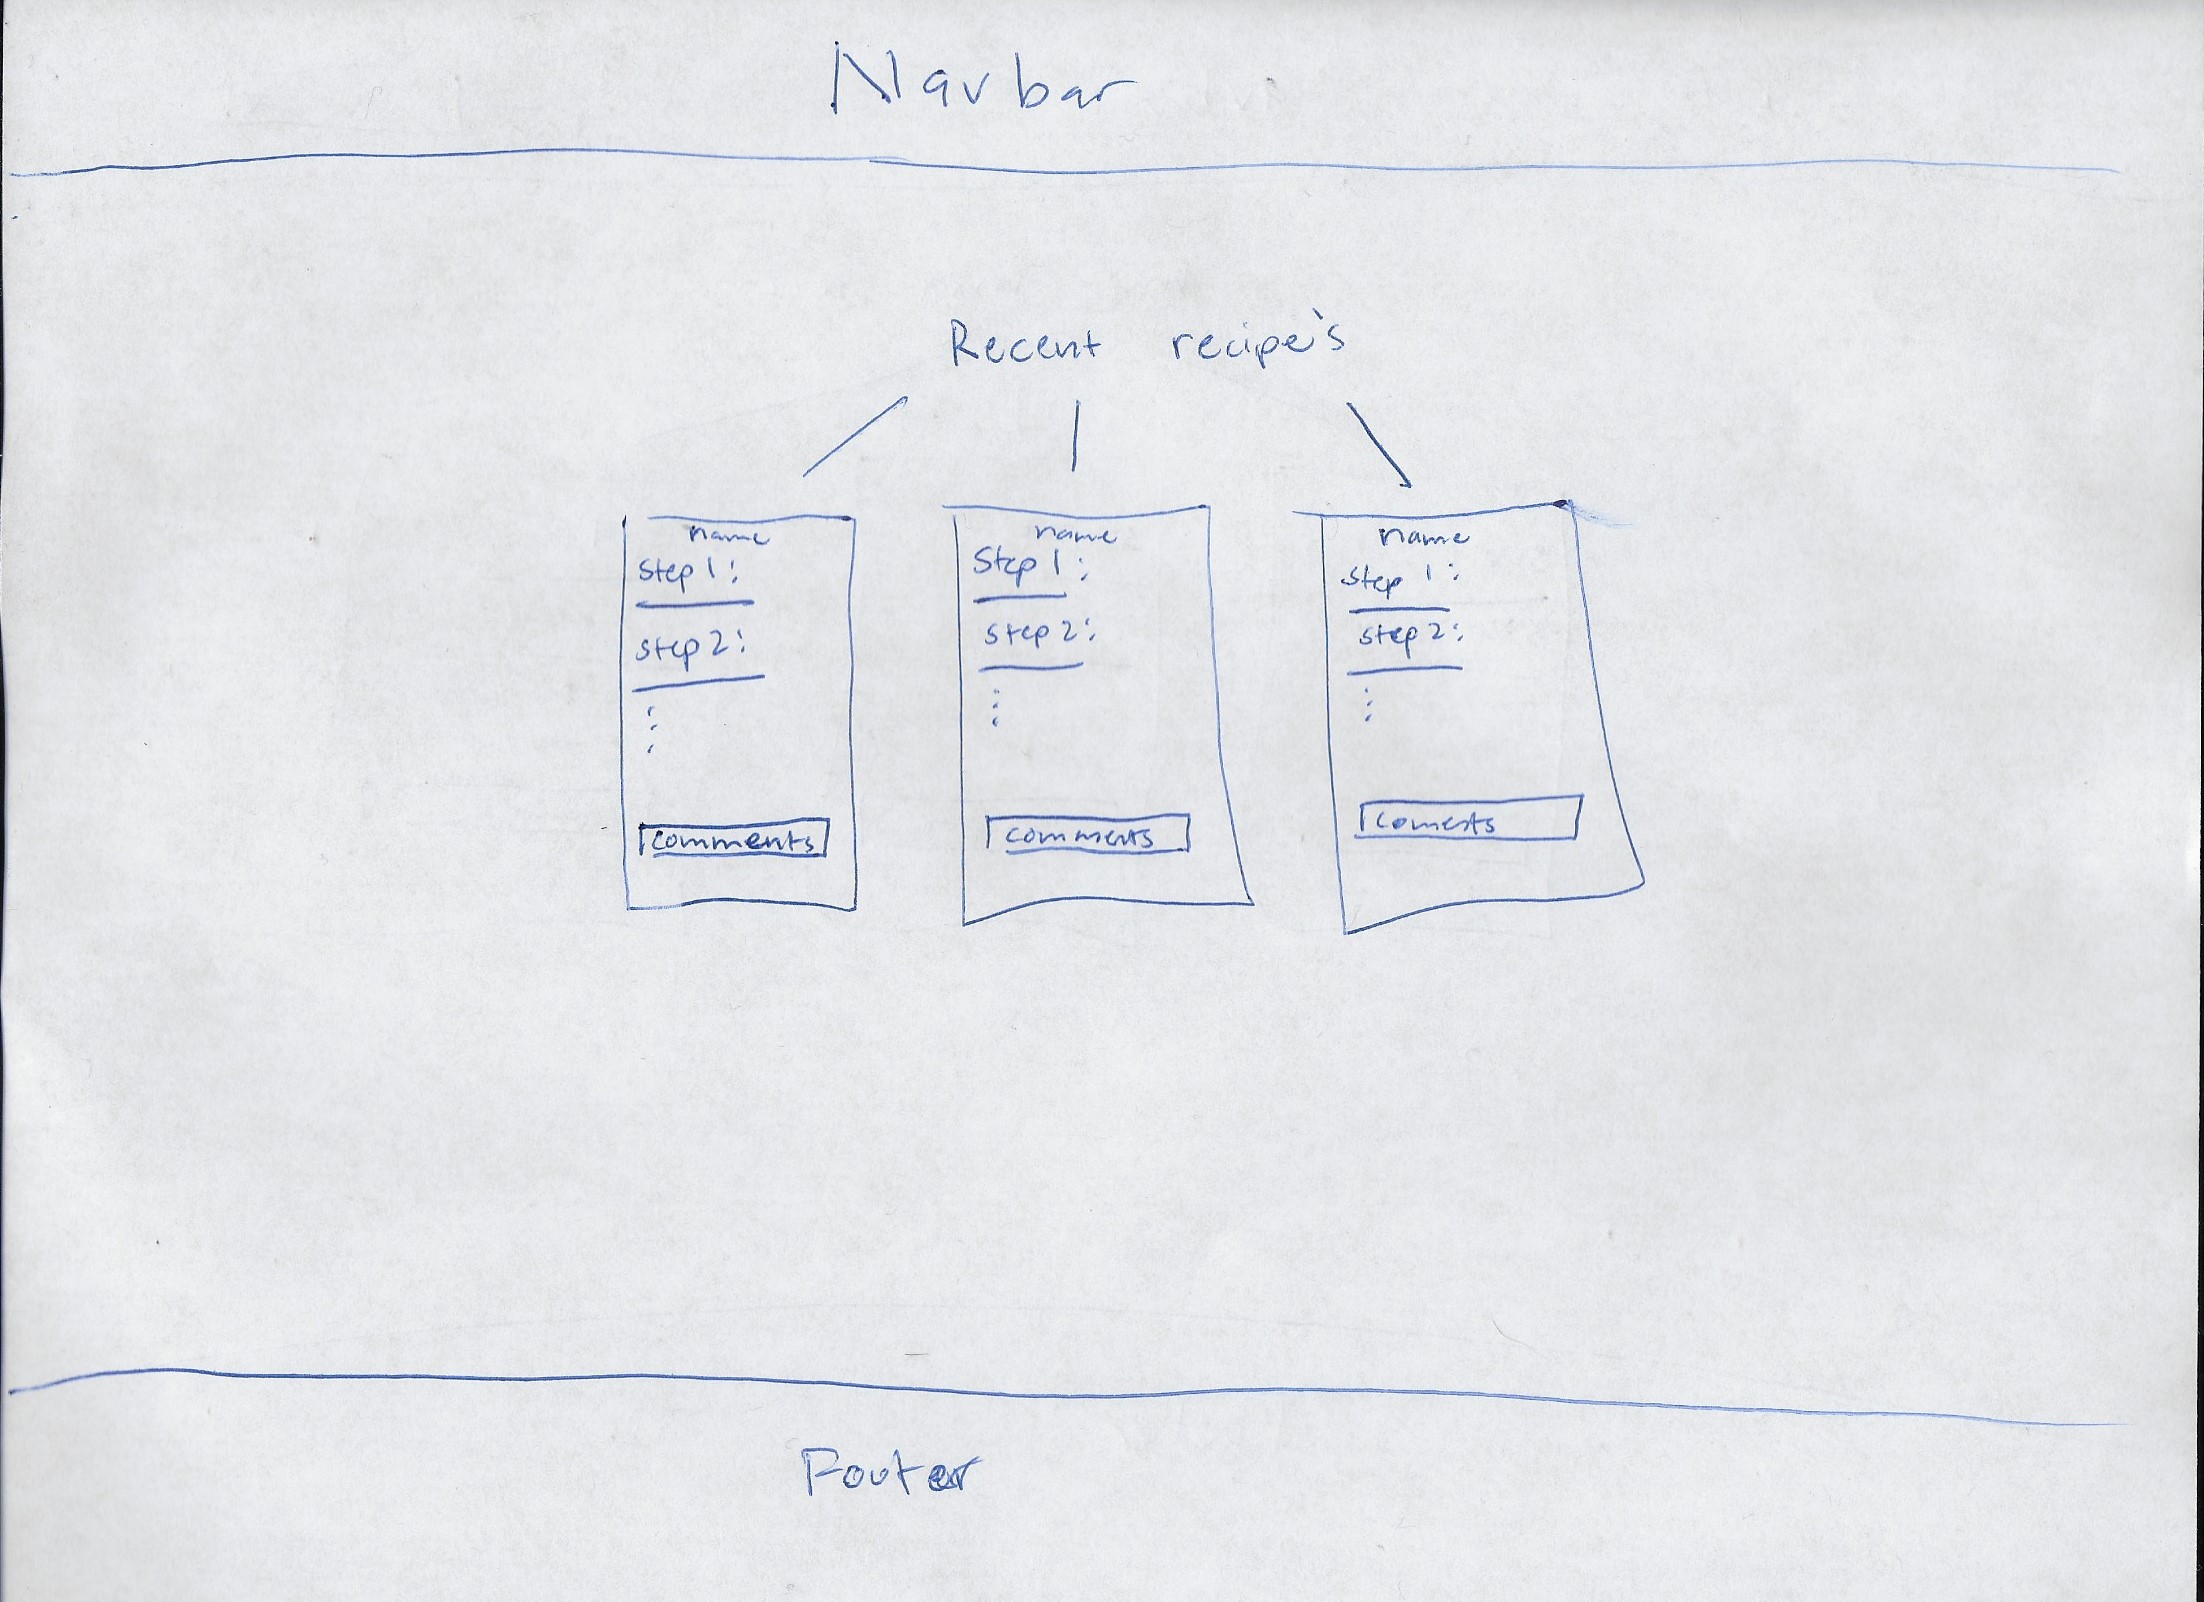 Navbar
Recent recipe's
name
Step 1:
step 2:
comments
name
Step 1:
step 2:
comments
name
step 1:
step 2:
coments
Footer